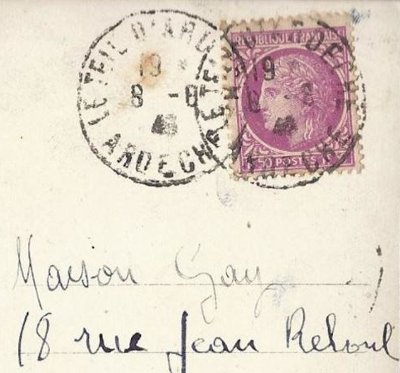 LE TEIL D'ARDÈCHE
19 *
8 - 8
ARDECHE
RÉPUBLIQUE FRANÇAISE
19
8 - 8
POSTES
Maison Gay
18 rue Jean Reboul